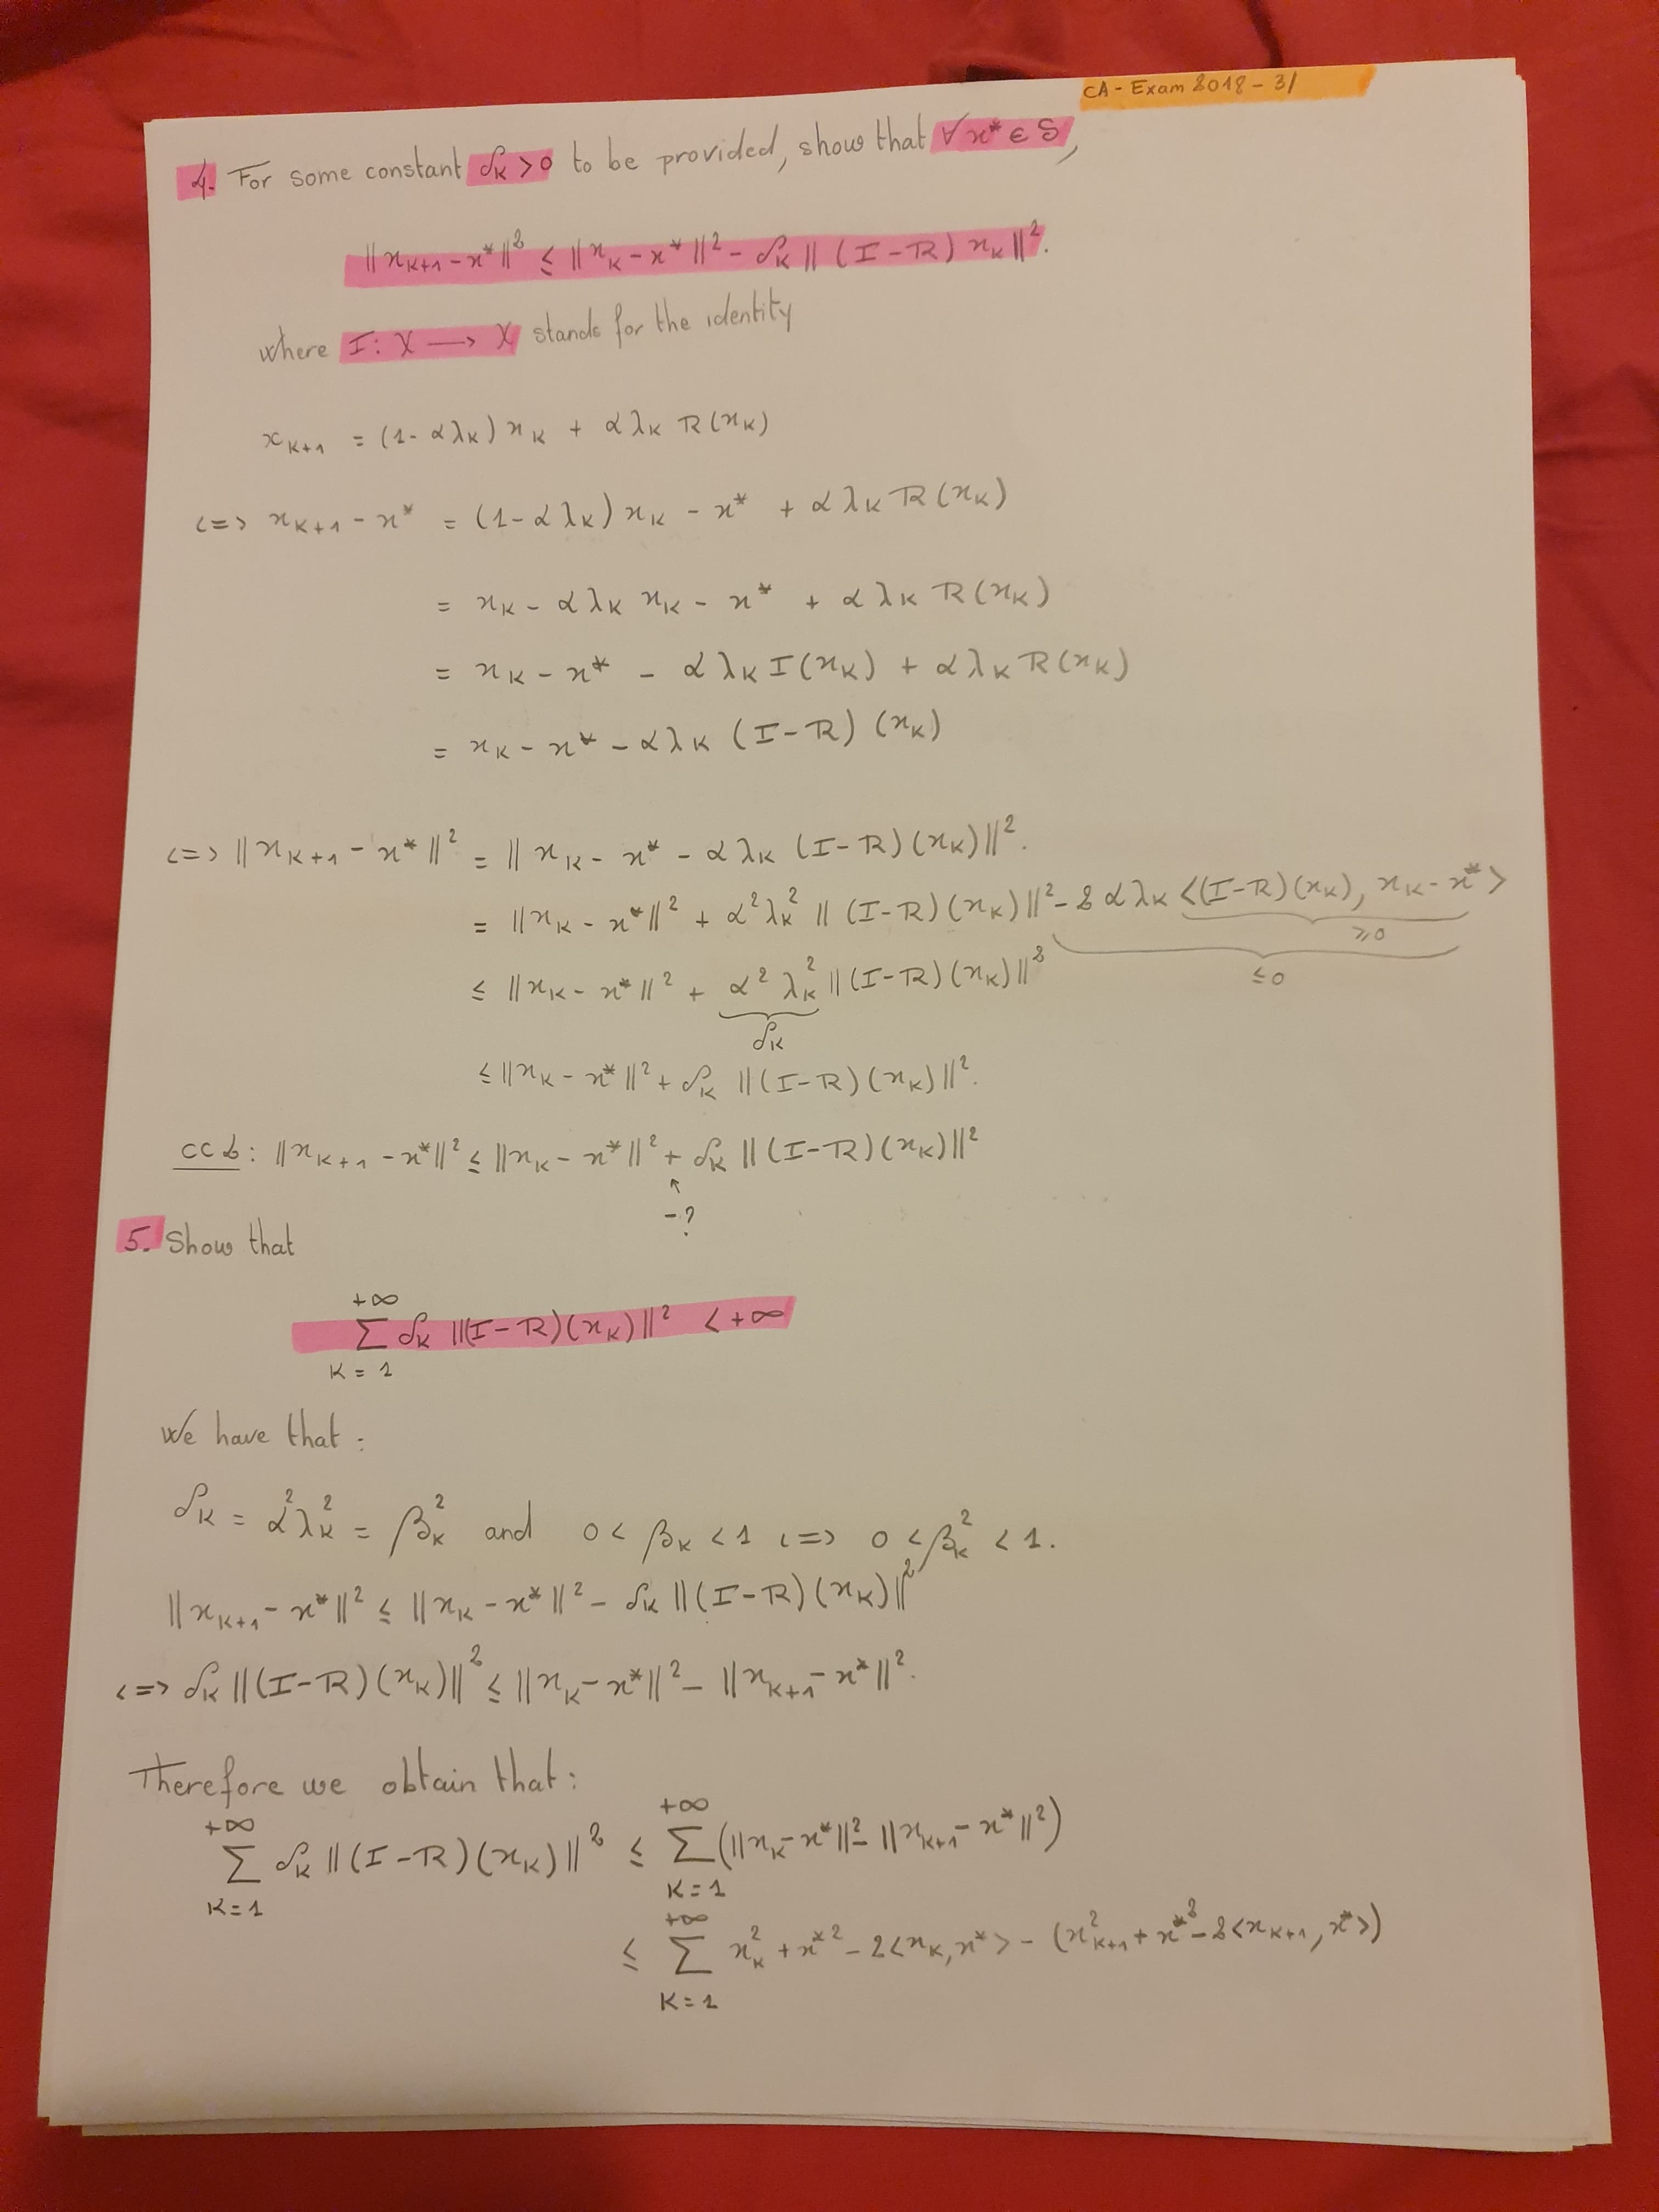 CA - Exam 2018 - 3/
4. For some constant δ_K > 0 to be provided, show that ∀ x* ∈ S,
|| x_{K+1} - x* ||² ≤ || x_K - x* ||² - δ_K || (I - R) x_K ||².
where I : X ⟶ X stands for the identity
x_{K+1} = (1 - αλ_K) x_K + αλ_K R(x_K)
<=> x_{K+1} - x* = (1 - αλ_K) x_K - x* + αλ_K R(x_K)
= x_K - αλ_K x_K - x* + αλ_K R(x_K)
= x_K - x* - αλ_K I(x_K) + αλ_K R(x_K)
= x_K - x* - αλ_K (I - R) (x_K)
<=> || x_{K+1} - x* ||² = || x_K - x* - αλ_K (I - R)(x_K) ||².
= || x_K - x* ||² + α²λ_K² || (I - R)(x_K) ||² - 2αλ_K <(I - R)(x_K), x_K - x*>
≥ 0
≤ || x_K - x* ||² + α² λ_K² || (I - R)(x_K) ||²
≤ 0
δ_K
≤ || x_K - x* ||² + δ_K || (I - R)(x_K) ||².
ccl : || x_{K+1} - x* ||² ≤ || x_K - x* ||² + δ_K || (I - R)(x_K) ||²
↑
- ?
5. Show that
+∞
Σ δ_K || (I - R)(x_K) ||² < +∞
K = 1
We have that :
δ_K = α²λ_K² = β_K² and 0 < β_K < 1 <=> 0 < β_K² < 1.
|| x_{K+1} - x* ||² ≤ || x_K - x* ||² - δ_K || (I - R)(x_K) ||²
<=> δ_K || (I - R)(x_K) ||² ≤ || x_K - x* ||² - || x_{K+1} - x* ||².
Therefore we obtain that :
+∞ +∞
Σ δ_K || (I - R)(x_K) ||² ≤ Σ (|| x_K - x* ||² - || x_{K+1} - x* ||²)
K = 1 K = 1
+∞
≤ Σ x_K² + x*² - 2<x_K, x*> - (x_{K+1}² + x*² - 2<x_{K+1}, x*>)
K = 1